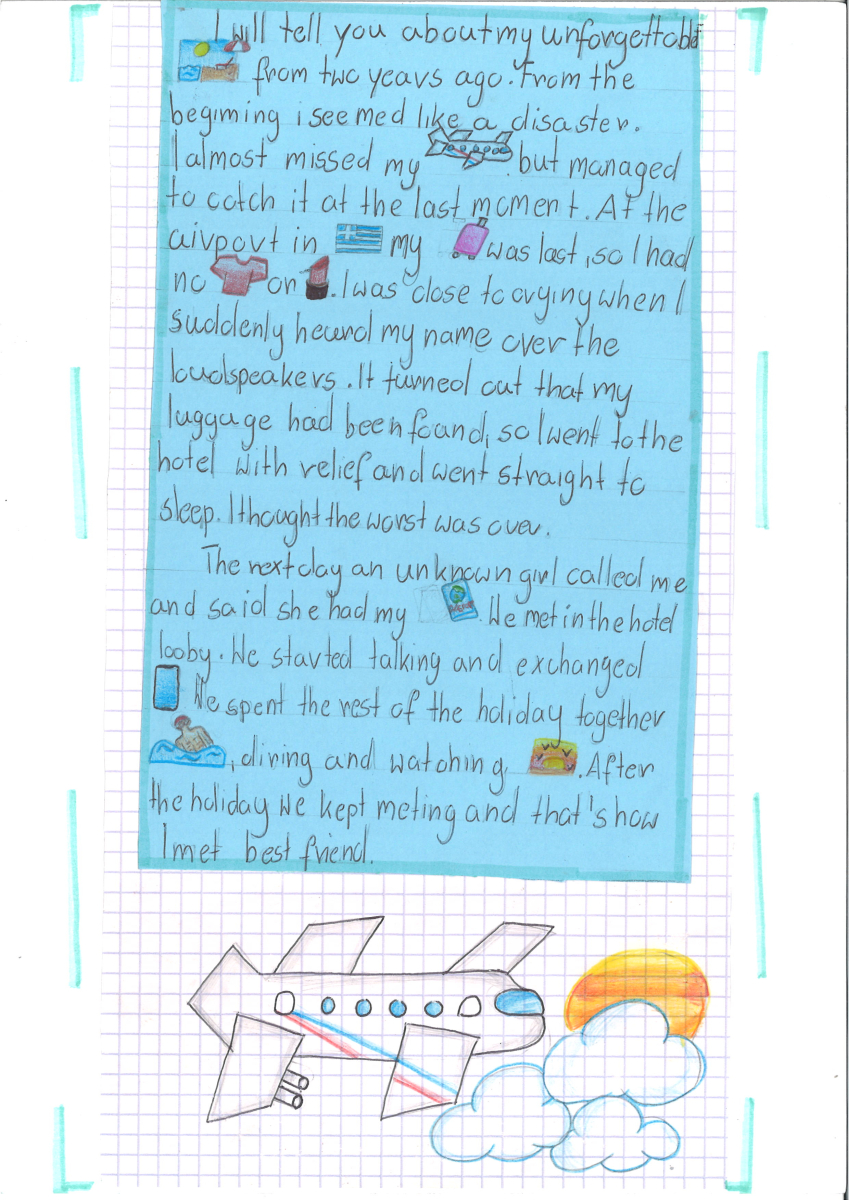 I will tell you about my unforgettable
from two years ago. From the
begining i seemed like a disaster.
I almost missed my but managed
to catch it at the last moment. At the
airport in my was last, so I had
no or . I was close to crying when I
suddenly heard my name over the
loudspeakers. It turned out that my
luggage had been found, so I went to the
hotel with relief and went straight to
sleep. I thought the worst was over.
The next day an unknown girl called me
and said she had my . We met in the hotel
looby. We started talking and exchanged
We spent the rest of the holiday together
, diving and watching . After
the holiday we kept meting and that's how
I met best friend.